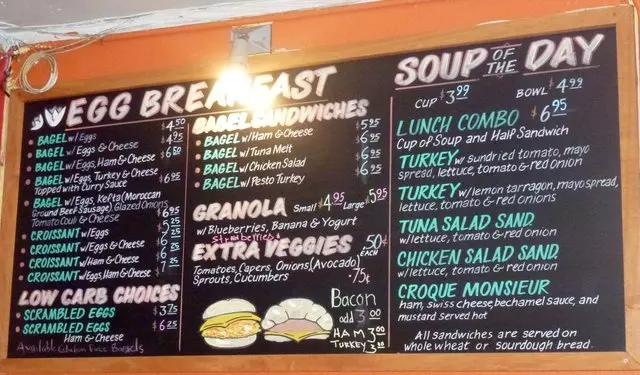 EGG BREAKFAST
BAGEL w/Eggs $4.50
BAGEL w/Eggs & Cheese $4.95
BAGEL w/Eggs, Ham & Cheese $6.50
BAGEL w/Eggs, Turkey & Cheese
Topped with Curry Sauce $6.95
BAGEL w/Eggs, Kefta (Moroccan
Ground Beef Sausage) Glazed Onions
Tomato Coulis & Cheese $6.95
CROISSANT w/Eggs $5.25
CROISSANT w/Eggs & Cheese
CROISSANT w/Ham & Cheese
CROISSANT w/Eggs, Ham & Cheese $7.25
LOW CARB CHOICES
SCRAMBLED EGGS $3.75
SCRAMBLED EGGS $6.25
Ham & Cheese
Available Gluten Free Bagels
BAGEL SANDWICHES
BAGEL w/Ham & Cheese $5.95
BAGEL w/Tuna Melt $6.95
BAGEL w/Chicken Salad $6.95
BAGEL w/Pesto Turkey $6.95
GRANOLA Small $4.95 Large $5.95
w/Blueberries, Banana & Yogurt
Strawberries
EXTRA VEGGIES .50¢ EACH
Tomatoes, Capers, Onions (Avocado)
Sprouts, Cucumbers .75¢
Bacon
add 3.00
HAM 3.00
TURKEY 3.00
SOUP OF THE DAY
CUP $3.99 BOWL $4.99
LUNCH COMBO $6.95
Cup of Soup and Half Sandwich
TURKEY w/ sundried tomato, mayo
spread, lettuce, tomato & red onion
TURKEY w/lemon tarragon, mayo spread,
lettuce, tomato & red onions
TUNA SALAD SAND
w/lettuce, tomato & red onion
CHICKEN SALAD SAND.
w/lettuce, tomato & red onion
CROQUE MONSIEUR
ham, swiss cheese, bechamel sauce, and
mustard served hot
All sandwiches are served on
whole wheat or sourdough bread.